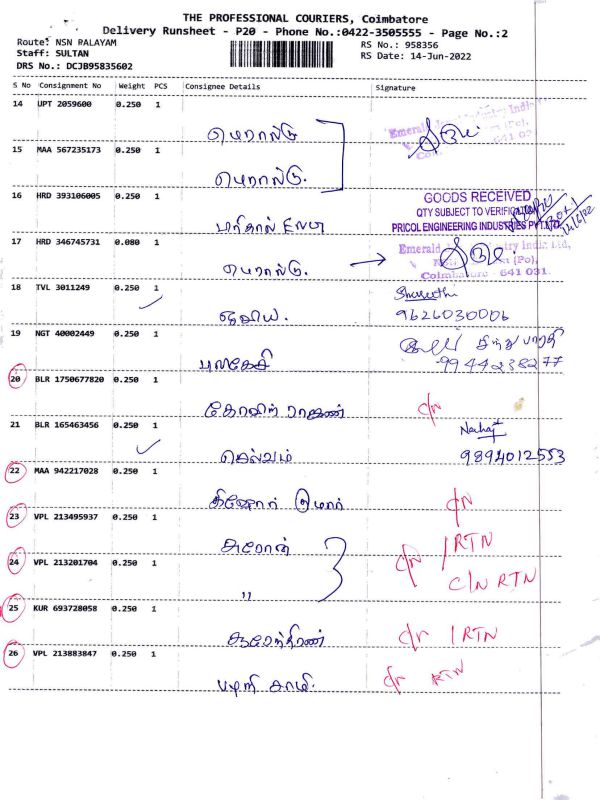 THE PROFESSIONAL COURIERS, Coimbatore
Delivery Runsheet - P20 - Phone No.:0422-3505555 - Page No.:2
Route: NSN PALAYAM RS No.: 958356
Staff: SULTAN RS Date: 14-Jun-2022
DRS No.: DCJB95835602
S No Consignment No Weight PCS Consignee Details Signature
14 UPT 2059600 0.250 1
Emerald
641 03
15 MAA 567235173 0.250 1
16 HRD 393106005 0.250 1
GOODS RECEIVED
QTY SUBJECT TO VERIFICATION
PRICOL ENGINEERING INDUSTRIES PVT LTD
14/6/22
17 HRD 346745731 0.080 1
Emerald Industry India Ltd,
(Po),
Coimbatore - 641 031.
18 TVL 3011249 0.250 1
9626030006
19 NGT 40002449 0.250 1
9944238277
புலகேசி
20 BLR 1750677820 0.250 1
c/n
21 BLR 165463456 0.250 1
செல்வம் 9894012553
22 MAA 942217028 0.250 1
கிஷோர் குமார் c/n
23 VPL 213495937 0.250 1
c/n / RTN
24 VPL 213201704 0.250 1
,, C/N RTN
25 KUR 693728058 0.250 1
c/n / RTN
26 VPL 213883847 0.250 1
பழனி சாமி. c/n RTN